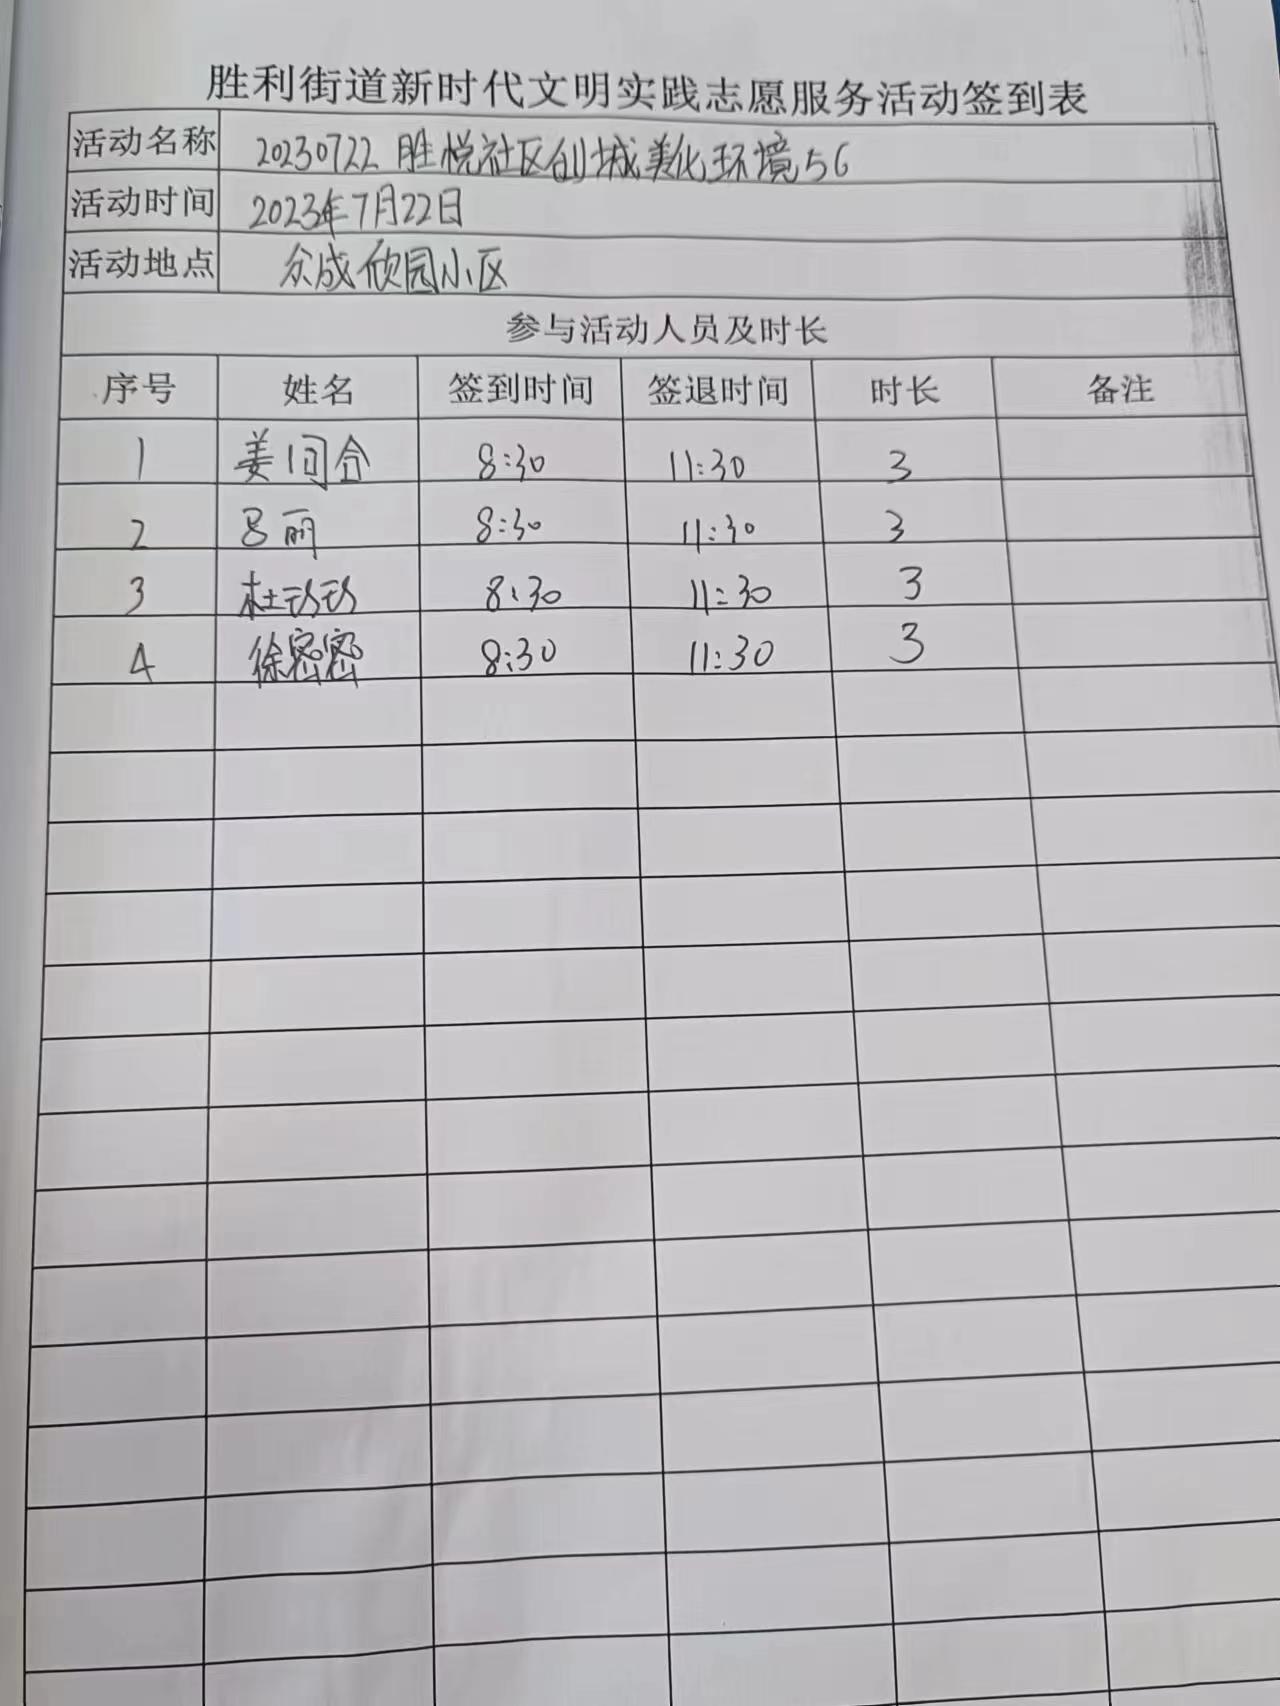 胜利街道新时代文明实践志愿服务活动签到表
活动名称 20230722 胜悦社区创城美化环境56
活动时间 2023年7月22日
活动地点 众成欣园小区
参与活动人员及时长
序号 姓名 签到时间 签退时间 时长 备注
1 姜闫合 8:30 11:30 3
2 吕丽 8:30 11:30 3
3 杜动动 8:30 11:30 3
4 徐密密 8:30 11:30 3